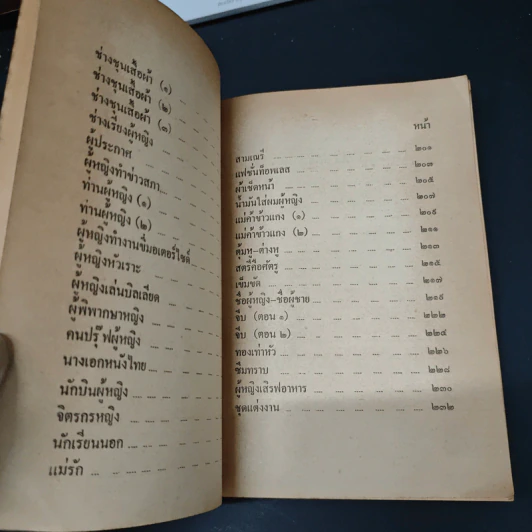 ช่างชุนเสื้อผ้า (๑)
ช่างชุนเสื้อผ้า (๒)
ช่างชุนเสื้อผ้า (๓)
ช่างเรียงผู้หญิง
ผู้ประกาศ
ผู้หญิงทำข่าวสภา
ท่านผู้หญิง (๑)
ท่านผู้หญิง (๒)
ผู้หญิงทำงานขี่มอเตอร์ไซด์
ผู้หญิงหัวเราะ
ผู้หญิงเล่นบิลเลียด
ผู้พิพากษาหญิง
คนปรู๊ฟผู้หญิง
นางเอกหนังไทย
นักบินผู้หญิง
จิตรกรหญิง
นักเรียนนอก
แม่รัก
หน้า
สามเณรี ๒๐๑
แฟชั่นท็อพเลส ๒๐๓
ผ้าเช็ดหน้า ๒๐๕
น้ำมันใส่ผมผู้หญิง ๒๐๗
แม่ค้าข้าวแกง (๑) ๒๐๙
แม่ค้าข้าวแกง (๒) ๒๑๑
ตุ้มหู-ต่างหู ๒๑๓
สตรีคือศัตรู ๒๑๕
เข็มขัด ๒๑๗
ชื่อผู้หญิง-ชื่อผู้ชาย ๒๑๙
จีบ (ตอน ๑) ๒๒๒
จีบ (ตอน ๒) ๒๒๔
ทองเท่าหัว ๒๒๖
ซึมทราบ ๒๒๘
ผู้หญิงเสิรฟอาหาร ๒๓๐
ชุดแต่งงาน ๒๓๒